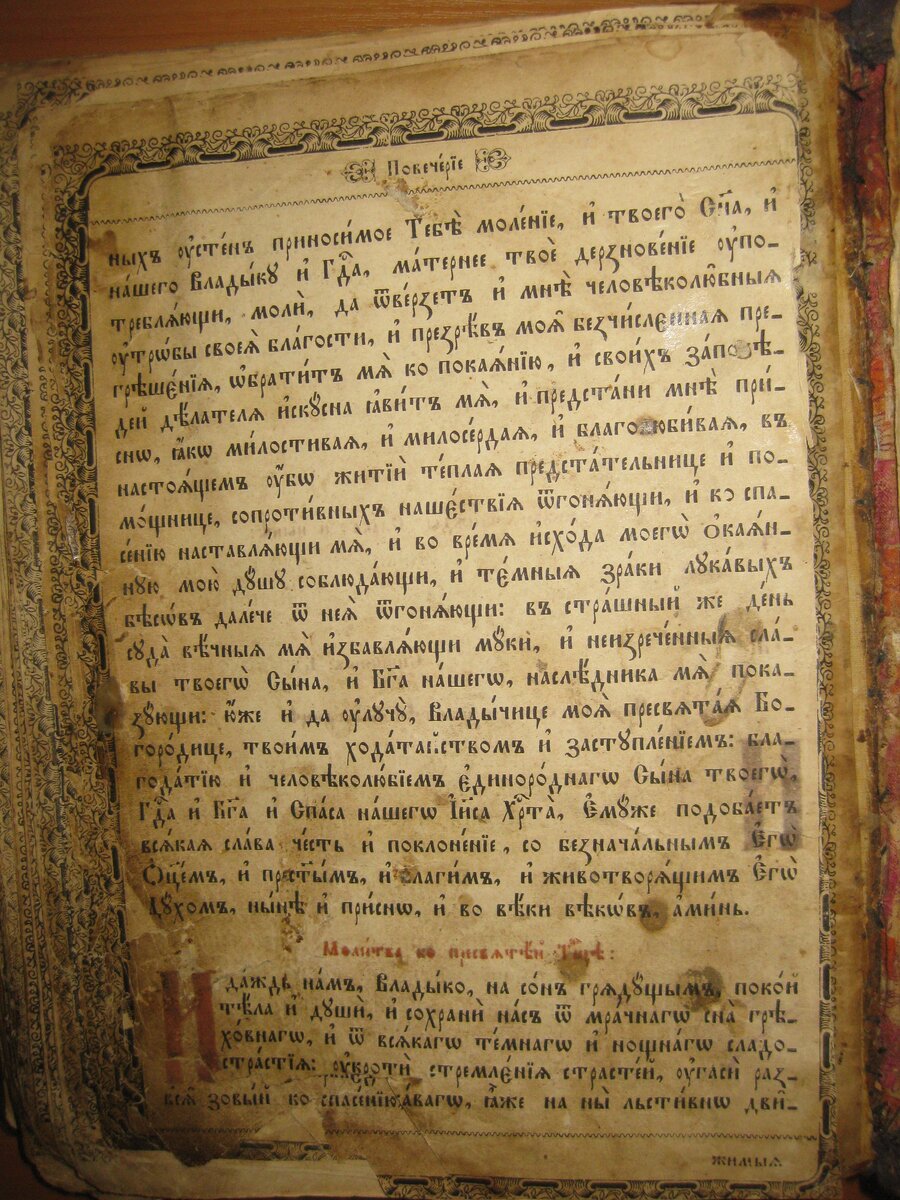 Повече́рїе
ныхъ ᲂу҆сте́нъ приноси́мое Тебѣ̀ моле́нїе, и҆ твоегѡ̀ Сн҃а, и҆
на́шего Влады́ку и҆ Гдⷭ҇а, ма́тернее твоѐ дерзнове́нїе ᲂу҆по-
требля́ющи, молѝ, да ѿве́рзетъ и҆ мнѣ̀ человѣколю̂бныѧ
ᲂу҆трѡ́бы своеѧ̀ бла́гости, и҆ презрѣ́въ моѧ̑ безчи́сленнаѧ пре-
грѣше́нїѧ, ѡ҆брати́тъ мѧ̀ ко покаѧ́нїю, и҆ свои́хъ за́повѣ-
дей дѣ́лателѧ и҆ску́сна ꙗ҆ви́тъ мѧ̀, и҆ предста́ни мнѣ̀ при́-
снѡ, ꙗ҆́кѡ ми́лостиваѧ, и҆ милосе́рдаѧ, и҆ благолюби́ваѧ, въ
настоѧ́щемъ ᲂу҆́бѡ житїѝ те́плаѧ предста́тельнице и҆ по-
мо́щнице, сопроти́вныхъ наше́ствїѧ ѿгонѧ́ющи, и҆ ко спа-
се́нїю наставлѧ́ющи мѧ̀, и҆ во вре́мѧ и҆схо́да моегѡ̀ ѻ҆каѧ́н-
ную мою̀ дꙋ́шꙋ соблюда́ющи, и҆ те́мныѧ зра́ки лука́выхъ
бѣсѡ́въ дале́че ѿ неѧ̀ ѿгонѧ́ющи: въ стра́шный же де́нь
сꙋда̀ вѣ́чныѧ мѧ̀ и҆збавлѧ́ющи мꙋ́ки, и҆ неизрече́нныѧ сла́-
вы твоегѡ̀ Сы́на, и҆ Бг҃а на́шегѡ, наслѣ́дника мѧ̀ пока-
зꙋ́ющи: ю҆́же и҆ да ᲂу҆лꙋчꙋ̀, Влады́чице моѧ̀ пресвѧта́ѧ Бо-
горо́дице, твои́мъ хода́тайствомъ и҆ застꙋпле́нїемъ: бла-
года́тїю и҆ человѣколю́бїемъ є҆диноро́днагѡ Сы́на твоегѡ̀,
Гдⷭ҇а и҆ Бг҃а и҆ Спа́са на́шегѡ І҆и҃са Хрⷭ҇та̀, Є҆мꙋ́же подоба́етъ
всѧ́каѧ сла́ва че́сть и҆ поклоне́нїе, со безнача́льнымъ Є҆гѡ̀
Ѻ҆ц҃е́мъ, и҆ прест҃ы́мъ, и҆ благи́мъ, и҆ животворѧ́щимъ Є҆гѡ̀
Дꙋ́хомъ, ны́нѣ и҆ при́снѡ, и҆ во вѣ́ки вѣкѡ́въ, а҆ми́нь.
Моли́тва ко пресвѧтѣ́й Трⷪ҇цѣ:
И҆ да́ждь на́мъ, Влады́ко, на со́нъ грѧдꙋ́щымъ, поко́й
тѣ́ла и҆ дꙋшѝ, и҆ сохранѝ на́съ ѿ мра́чнагѡ сна̀ грѣ-
хо́внагѡ, и҆ ѿ всѧ́кагѡ те́мнагѡ и҆ нощна́гѡ сладо-
стра́стїѧ: ᲂу҆кротѝ стремле́нїѧ страсте́й, ᲂу҆гасѝ раз-
зовый ко спасенїю ꙗ҆́же на ны̀ льсти́внѡ дви́-
жимыѧ